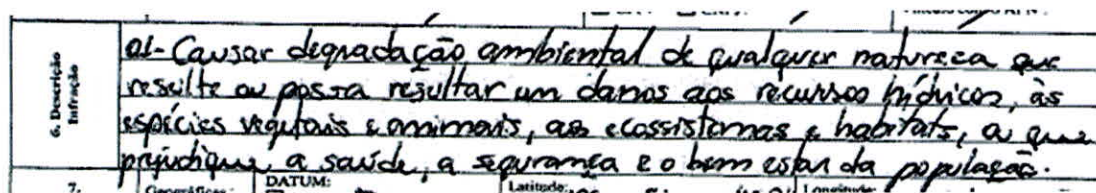 6. Descrição Infração
01- Causar degradação ambiental de qualquer natureza que
resulte ou possa resultar um danos aos recursos hídricos, às
espécies vegetais e animais, aos ecossistemas e habitats, ou que
prejudique, a saúde, a segurança e o bem estar da população.
7. Geográficas: DATUM: Latitude: Longitude: